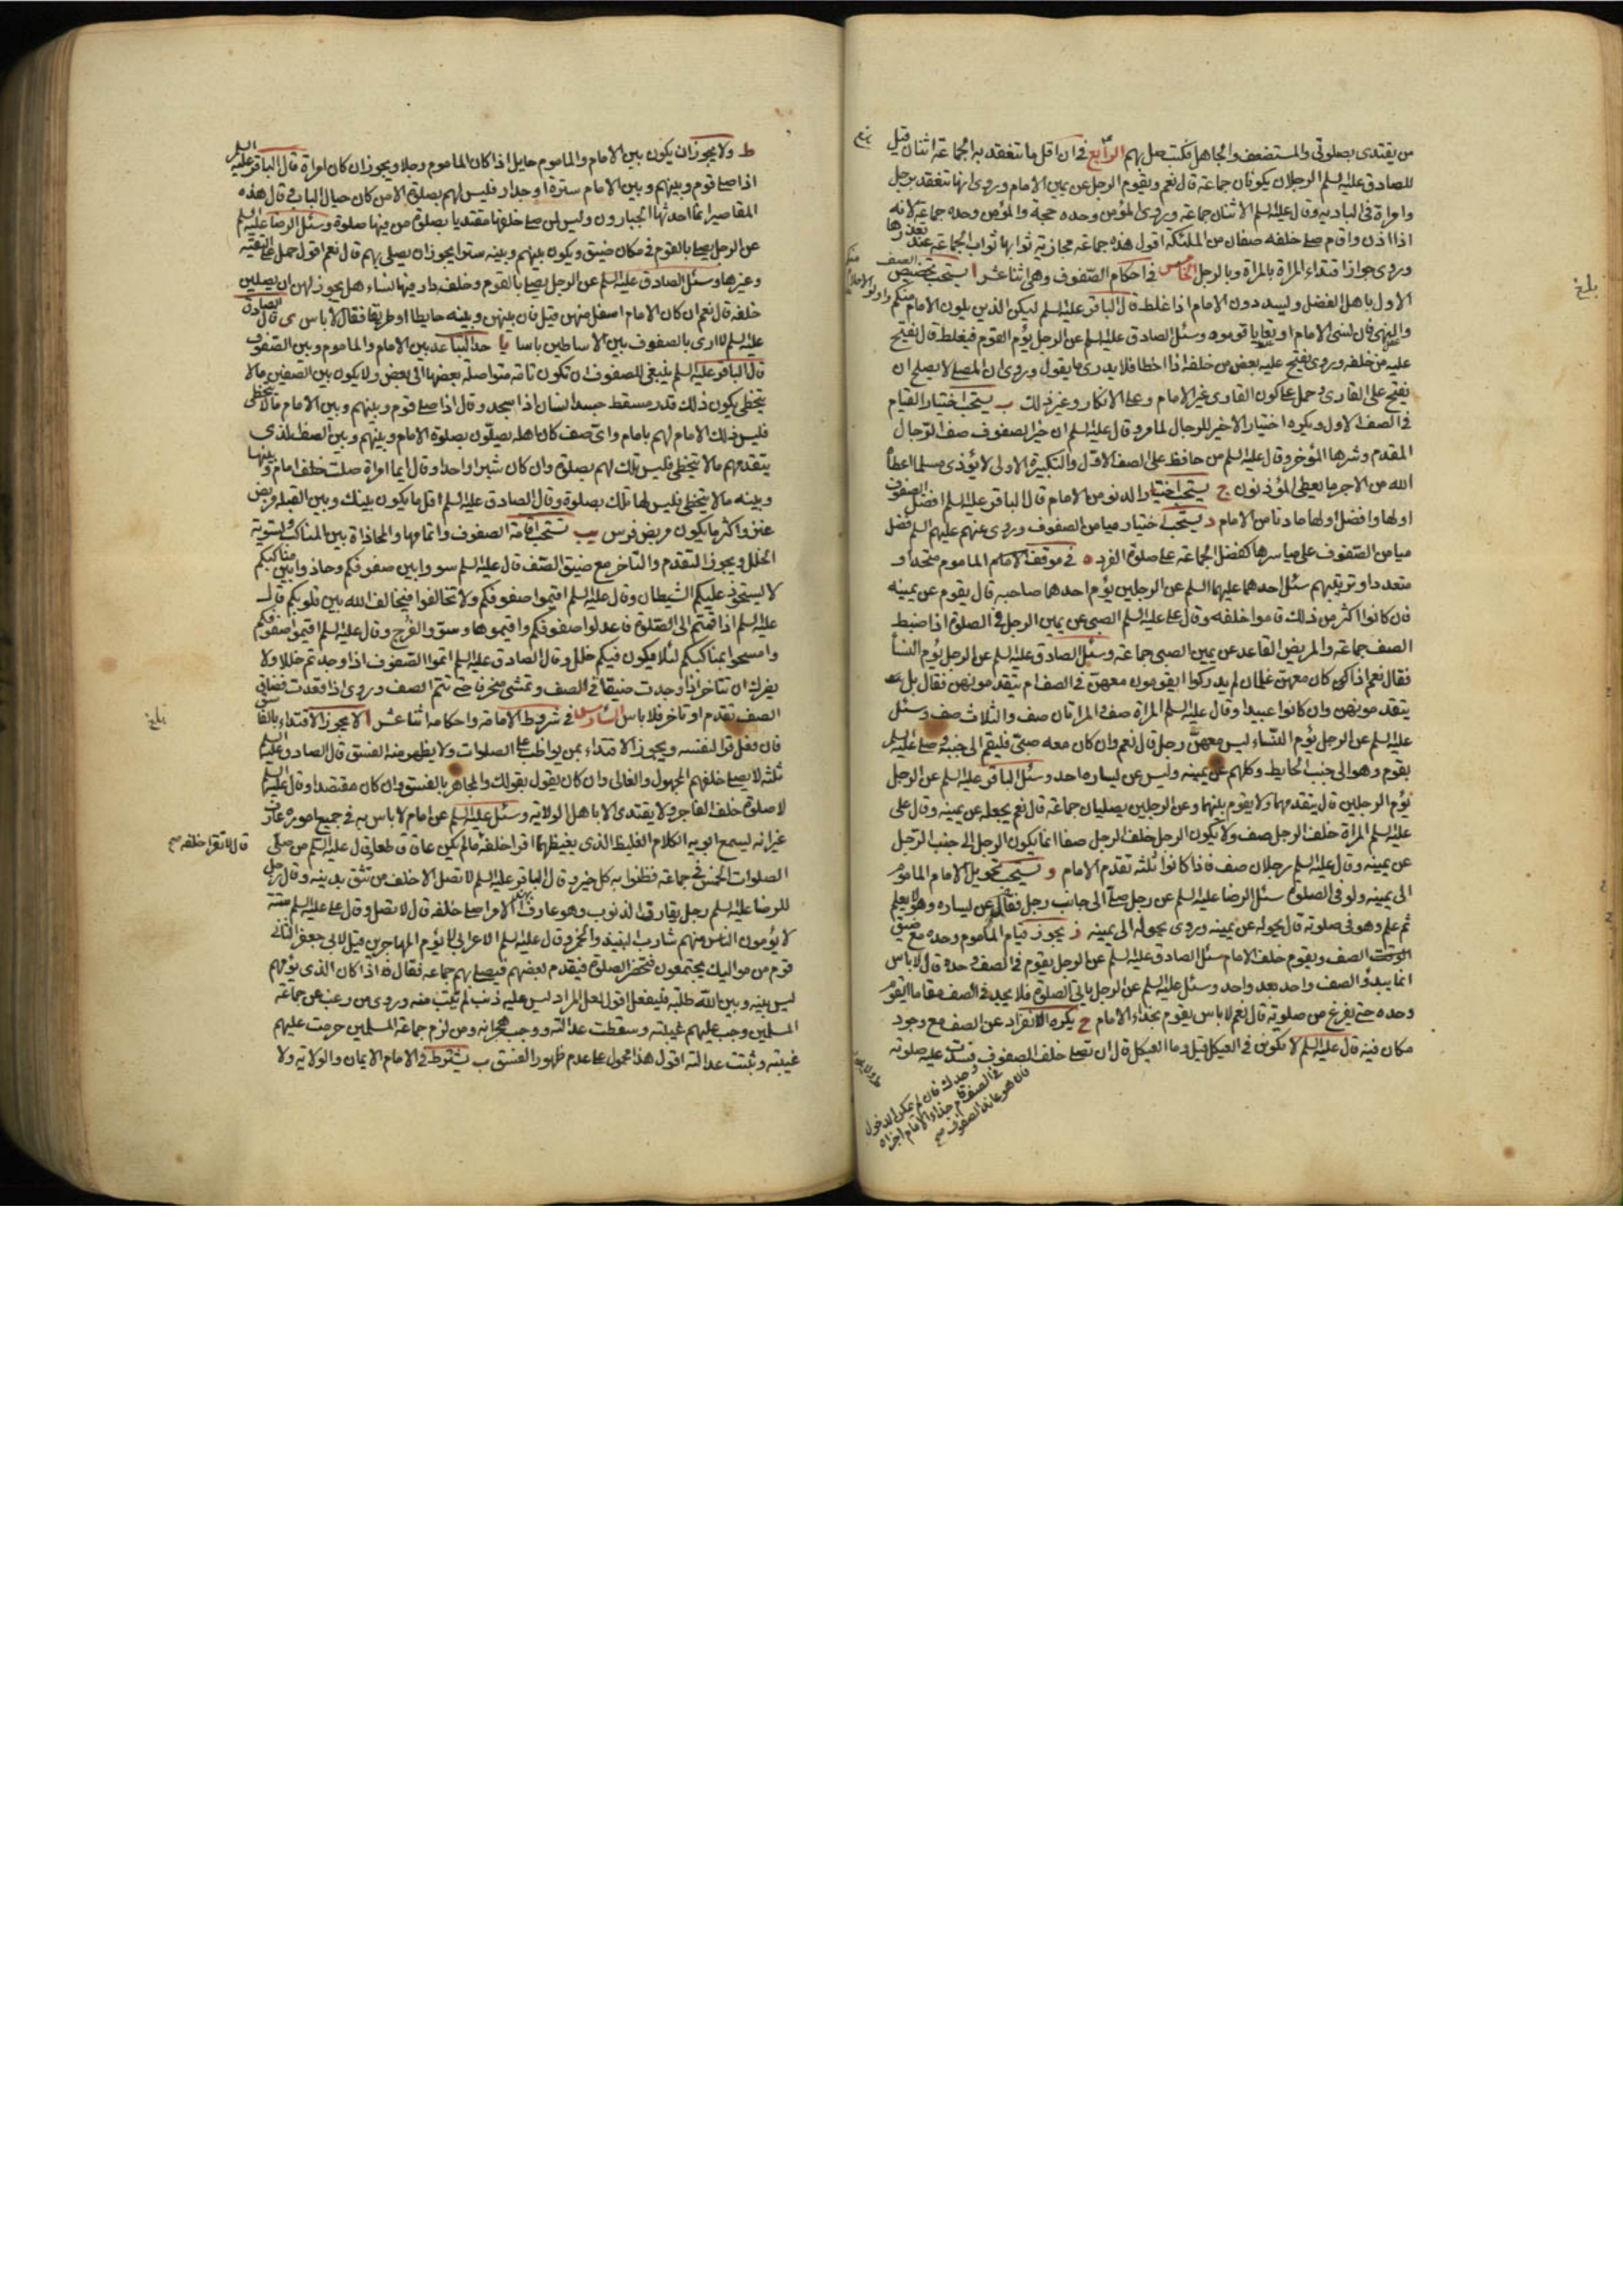 من يقتدى بصلوتى والمستضعف والجاهل تكتب صل بهم الرابع فى ان اقل ما تنعقد به الجماعة اثنان قيل
للصادق عليه السلم الرجلان يكونان جماعة قال نعم ويقوم الرجل عن يمين الامام وروى انها تنعقد برجل
وامراة فى البادية وقال عليه السلم الاثنان جماعة وروى المؤمن وحده حجة والمؤمن وحده جماعة لانه
اذا اذن واقام صلى خلفه صفان من الملئكة اقول هذه جماعة مجازية ثوابها ثواب الجماعة عند تعذرها
وروى جواز اقتداء المراة بالمراة وبالرجل الخامس فى احكام الصفوف وهى اثنا عشر ا يستحب تخصيص الصف
الاول باهل الفضل وليسددون الامام اذا غلط قال الباقر عليه السلم ليكن الذين يلون الامام منكم اولو الاحلام
والنهى فان نسى الامام او تعايا قوموه وسئل الصادق عليه السلم عن الرجل يؤم القوم فيغلط قال يفتح
عليه من خلفه وروى يفتح عليه بعض من خلفه اذا اخطا فلا يدرى ما يقول وروى ان المصلى لا يصلح ان
يفتح على القارئ وحمل على كون القارى غير الامام وعلى الانكار وغير ذلك ب يستحب اختيار القيام
فى الصف الاول ويكره اختيار الاخير للرجال لما مر وقال عليه السلم ان خير الصفوف صف الرجال
المقدم وشرها المؤخر وقال عليه السلم من حافظ على الصف الاول والتكبيرة الاولى لا يؤذى مسلما اعطاه
الله من الاجر ما يعطى المؤذنون ج يستحب اختيار الدنو من الامام قال الباقر عليه السلم افضل الصفوف
اولها وافضل اولها ما دنا من الامام د يستحب اختيار ميامن الصفوف وروى عنهم عليهم السلم فضل
ميامن الصفوف على مياسرها كفضل الجماعة على صلوة الفرد ه فى موقف الامام الماموم متحدا و
متعددا وترتيبهم سئل احدهما عليهما السلم عن الرجلين يؤم احدهما صاحبه قال يقوم عن يمينه
فان كانوا اكثر من ذلك قاموا خلفه وقال على عليه السلم الصبى عن يمين الرجل فى الصلوة اذا ضبط
الصف جماعة والمريض القاعد عن يمين الصبى جماعة وسئل الصادق عليه السلم عن الرجل يؤم النسا
فقال نعم اذا كن كان معهن غلمان لم يدركوا ايقومون معهن فى الصف ام يتقدمونهن فقال بل
يتقدمونهن وان كانوا عبيدا وقال عليه السلم المراة صف والمراتان صف والثلاث صف وسئل
عليه السلم عن الرجل يؤم النساء ليس معهن رجل قال نعم وان كان معه صبى فليقم الى جنبه وصلى عليه السلم
بقوم وهو الى جنب الحايط وكلهم عن يمينه وليس عن يساره احد وسئل الباقر عليه السلم عن الرجل
يؤم الرجلين قال يتقدمهما ولا يقوم بينهما وعن الرجلين يصليان جماعة قال نعم يجعله عن يمينه وقال على
عليه السلم المراة خلف الرجل صف ولا يكون الرجل خلف الرجل صفا انما يكون الرجل الى جنب الرجل
عن يمينه وقال عليه السلم رجلان صف فاذا كانوا ثلثة تقدم الامام و يستحب تحويل الامام الماموم
الى يمينه ولو فى الصلوة سئل الرضا عليه السلم عن رجل صلى الى جانب رجل فقام عن يساره وهو لا يعلم
ثم علم وهو فى صلوته قال يحوله عن يمينه وروى يحوله الى يمينه ز يجوز قيام الماموم وحده مع ضيق
الصف ويقوم خلف الامام سئل الصادق عليه السلم عن الرجل يقوم فى الصف وحده قال لا باس
انما يبدؤ الصف واحد بعد واحد وسئل عليه السلم عن الرجل ياتى الصلوة فلا يجد فى الصف مقاما ايقوم
وحده حتى يفرغ من صلوته قال نعم لا باس يقوم بحذاء الامام ح يكره الانفراد عن الصف مع وجود
مكان فيه قال عليه السلم لا تكونن فى العيكل قيل وما العيكل قال ان تصلى خلف الصفوف فسدت عليه صلوته
وحدك فان لم يمكن الدخول
فى الصف قام حذاء الامام اجزاه
فان هو عاند الصفوف صح
بلغ
ط ولا يجوز ان يكون بين الامام والماموم حايل اذا كان الماموم رجلا ويجوز ان كان امراة قال الباقر عليه السلم
اذا صلى قوم وبينهم وبين الامام سترة او جدار فليس لهم بصلوة الا من كان حيال الباب قال هذه
المقاصير انما احدثها الجبارون وليس لمن صلى خلفها مقتديا بصلوة من فيها صلوة وسئل الرضا عليه السلم
عن الرجل يصلى بالقوم فى مكان ضيق ويكون بينهم وبينه ستر ايجوز ان يصلى بهم قال نعم اقول حمل على التقية
وغيرها وسئل الصادق عليه السلم عن الرجل يصلى بالقوم وخلفه دار فيها نساء هل يجوز لهن ان يصلين
خلفه قال نعم ان كان الامام اسفل منهن قيل فان بينهن وبينه حايطا او طريقا فقال لا باس ى قال الصادق
عليه السلم لا ارى بالصفوف بين الاساطين باسا يا حد التباعد بين الامام والماموم وبين الصفوف
قال الباقر عليه السلم ينبغى للصفوف ان تكون تامة متواصلة بعضها الى بعض ولا يكون بين الصفين ما لا
يتخطى يكون ذلك قدر مسقط جسد انسان اذا سجد وقال اذا صلى قوم وبينهم وبين الامام ما لا يتخطى
فليس ذلك الامام لهم بامام واى صف كان اهله يصلون بصلوة الامام وبينهم وبين الصف الذى
يتقدمهم ما لا يتخطى فليس تلك لهم بصلوة وان كان شبرا واحدا وقال ايما امراة صلت خلف امام وبينها
وبينه ما لا يتخطى فليس لها تلك بصلوة وقال الصادق عليه السلم اقل ما يكون بينك وبين القبلة مربض
عنز واكثر ما يكون مربض فرس يب تستحب اقامة الصفوف واتمامها والمحاذاة بين المناكب وتسوية
الخلل ويجوز التقدم والتاخر مع ضيق الصف قال عليه السلم سووا بين صفوفكم وحاذوا بين مناكبكم
لا يستحوذ عليكم الشيطان وقال عليه السلم اقيموا صفوفكم ولا تخالفوا فيخالف الله بين قلوبكم قال
عليه السلم اذا قمتم الى الصلوة فاعدلوا صفوفكم واقيموها وسووا الفرج وقال عليه السلم اقيموا صفوفكم
وامسحوا بمناكبكم لئلا يكون فيكم خلل وقال الصادق عليه السلم اتموا الصفوف اذا وجدتم خللا ولا
يضرك ان تتاخر اذا وجدت ضيقا فى الصف وتمشى منحرفا حتى تتم الصف وروى اذا قعدت فضاق
الصف تقدم او تاخر فلا باس السادس فى شروط الامامة واحكامها اثنا عشر ا لا يجوز الاقتداء بالفاسق
فان فعل قرا لنفسه ويجوز الاقتداء بمن يواظب على الصلوات ولا يظهر منه الفسق قال الصادق عليه السلم
ثلثة لا يصلى خلفهم المجهول والغالى وان كان يقول بقولك والمجاهر بالفسق وان كان مقتصدا وقال عليه السلم
لا صلوة خلف الفاجر ولا يقتدى الا باهل الولاية وسئل عليه السلم عن امام لا باس به فى جميع اموره عارف
غير انه يسمع ابويه الكلام الغليظ الذى يغيظهما اقرا خلفه ما لم يكن عاقا قاطعا وقال عليه السلم من صلى
قال لا تقرا خلفه صح
الصلوات الخمس فى جماعة فظنوا به كل خير وقال الباقر عليه السلم لا تصل الا خلف من تثق بدينه وقال رجل
للرضا عليه السلم رجل يقارف الذنوب وهو عارف بهذا الامر اصلى خلفه قال لا تصل وقال على عليه السلم ستة
لا يؤمون الناس منهم شارب النبيذ والخمر وقال عليه السلم الاعرابى لا يؤم المهاجرين قيل لابى جعفر الثانى
قوم من مواليك يجتمعون فتحضر الصلوة فيقدم بعضهم فيصلى بهم جماعة فقال اذا كان الذى يؤمهم
ليس بينه وبين الله طلبة فليفعل اقول لعل المراد ليس عليه ذنب لم يتب منه وروى من رغب عن جماعة
المسلمين وجب عليهم غيبته وسقطت عدالته ووجب هجرانه ومن لزم جماعة المسلمين حرمت عليهم
غيبته وثبتت عدالته اقول هذا محمول على عدم ظهور الفسق ب يشترط فى الامام الايمان والولاية ولا
بلغ